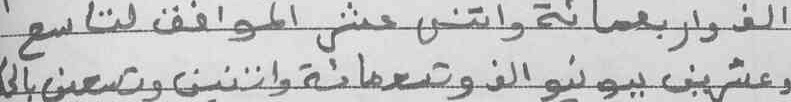 الف واربعمائة واتنى عشر الموافق لتاسع
وعشرين يونيو الف وتسعمائة واثنين وتسعين